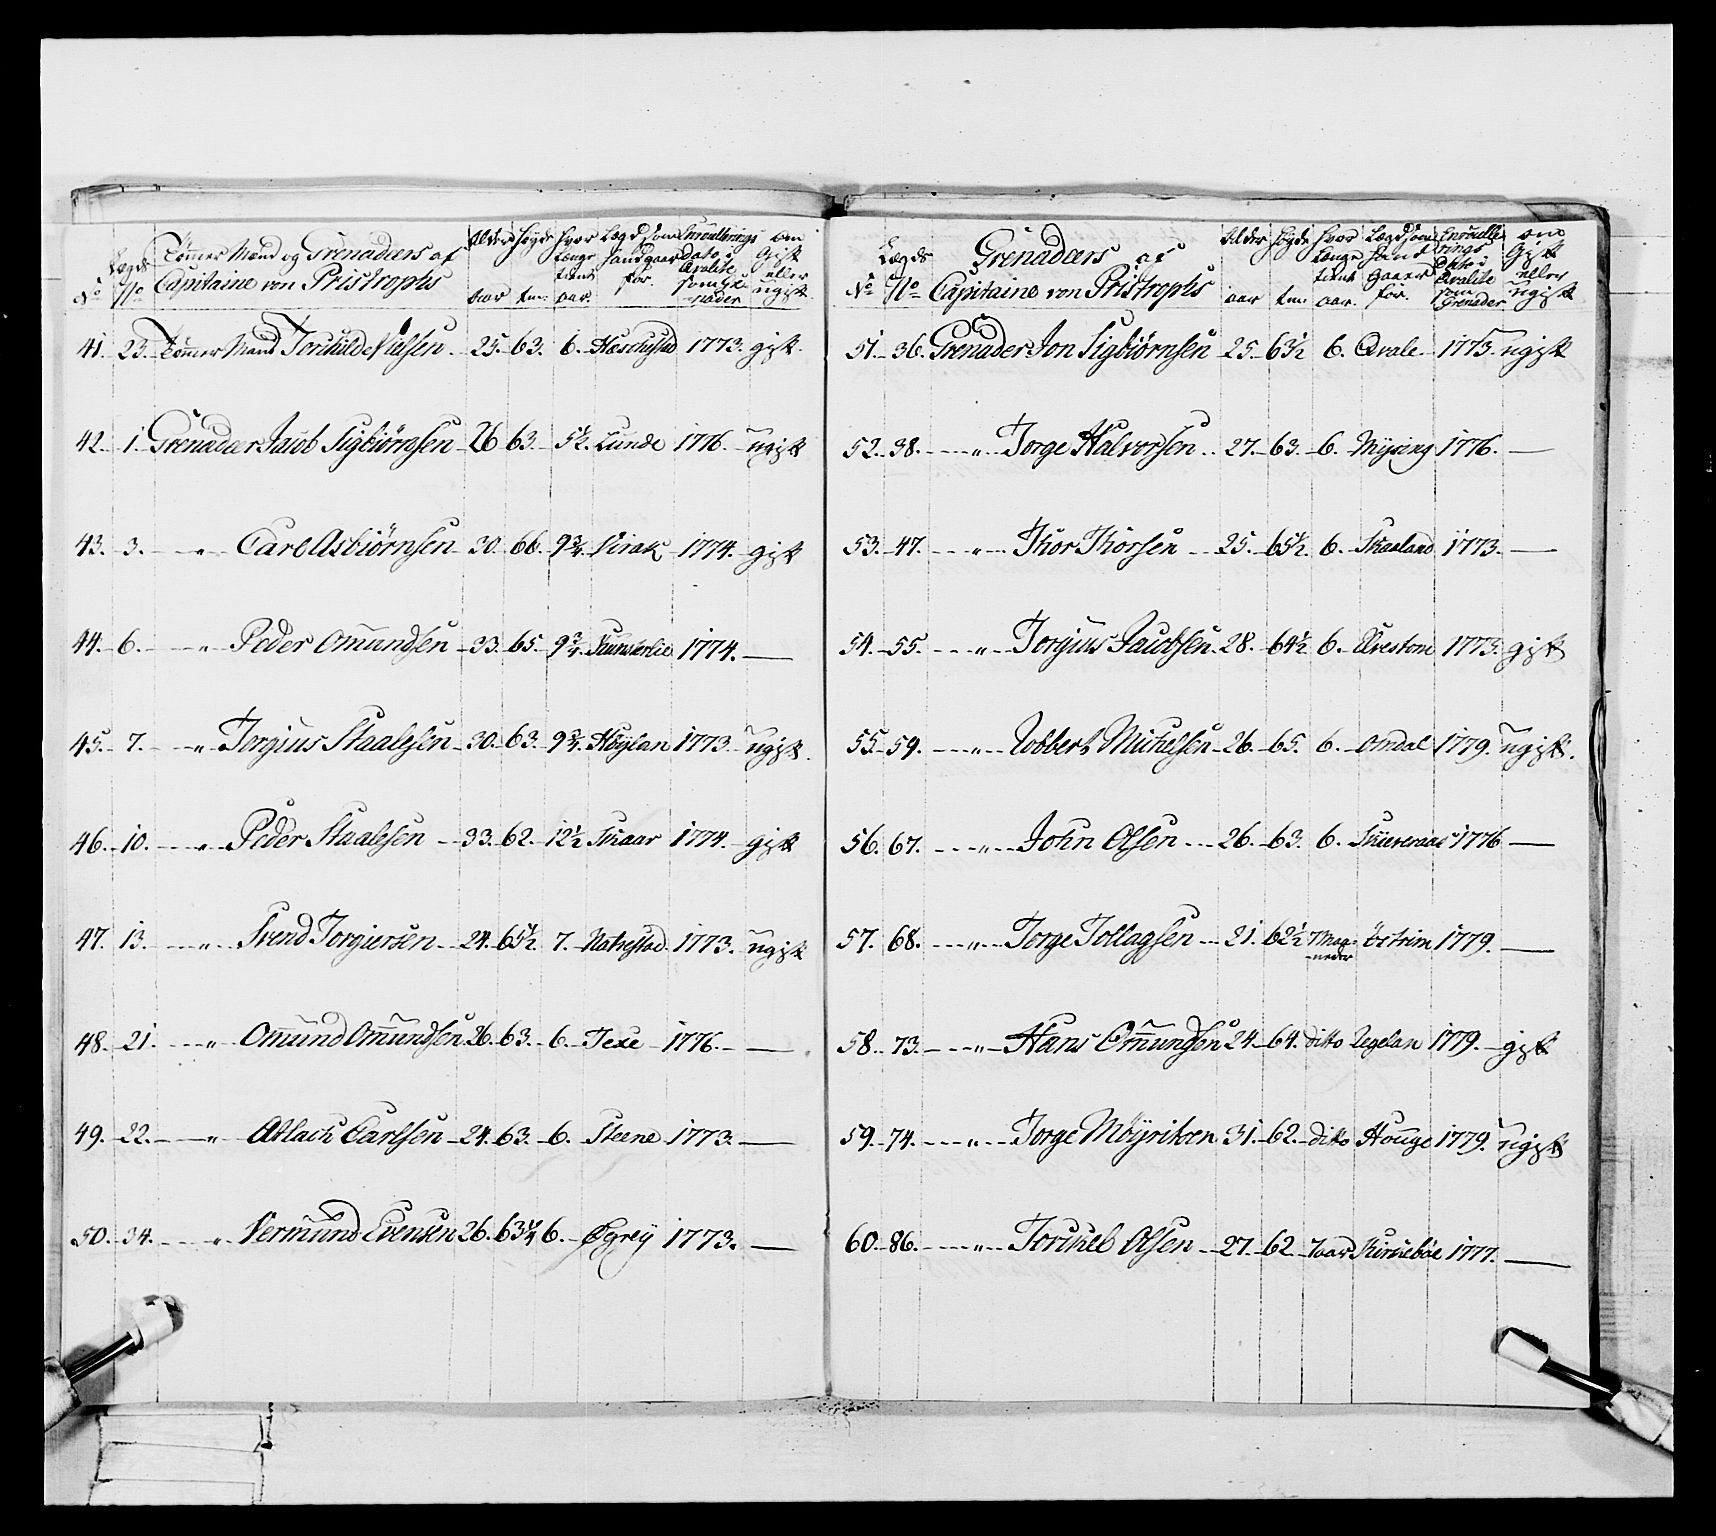 No Lægds No Tömmer Mand og Grenadeers af Capitaine von Pristrophs Alder aar Høyde tm: hvor længe tient aar. Lægd som hand gaar for. Enroullerings Dato i Qvalite som Gre-nader om Gift eller ugift
41. 23. Tömmer Mand Torkild Nielsen 25. 63. 6. 1773. gift
42. 1. Grenadeer Jacob Sigbiörnsen 26 63. 5½ Lunde 1776. ugift
43. 3. " Carl Asbiörnsen 30. 66. 9¾ Virak 1774. gift
44. 6. " Peder Omundsen 33. 65. 9¾ 1774. —
45. 7. " Torgius Staalesen 30. 63. 9¾ Höylan 1773. ugift.
46. 10. " Peder Staalesen 33. 62. 12½ Skaar 1774. gift
47. 13. " Svend Torgiersen 24. 65½ 7. Natvestad 1773. ugift
48. 21. " Omund Omundsen 26. 63. 6. Texe 1776. —
49. 22. " Atlach Carlsen 24. 63. 6. Steene 1773. —
50. 34. " Vermund Evensen 26. 63¼ 6. Øgrey 1773. —
No Lægds No Grenadeers af Capitaine von Pristrophs Alder aar Høyde tm: hvor længe tient aar. Lægd som hand gaaer for. Enroullerings Dato i Qvalite som Grenader om Gift eller ugift
51. 36. Grenader Jon Sigbiörnsen 25. 63½ 6. Qvale. 1775. ugift
52. 38. " Torge Halvorsen 27. 63. 6. Mysing 1776. —
53. 47. " Thor Thorsen 25. 65½. 6. Skaaland 1773. —
54. 55. " Torgius Jacobsen 28. 64½ 6. Refvestom 1773. gift
55. 59. " Robbert Michelsen 26. 65. 6. Omdal 1779. ugift.
56. 67. " John Olsen 26. 63. 6. 1776 —
57. 68. " Torge Tollagsen 21. 62½ 7 Maa-neder östrim 1779. —
58. 73. " Hans Omundsen 24. 64. ditto Regelan 1779. gift
59. 74. " Torge Möyriksen 31. 62. dito Houge 1779. ugift
60. 86. " Torkel Olsen 27. 62. 7aar Kirkeböe 1777. —